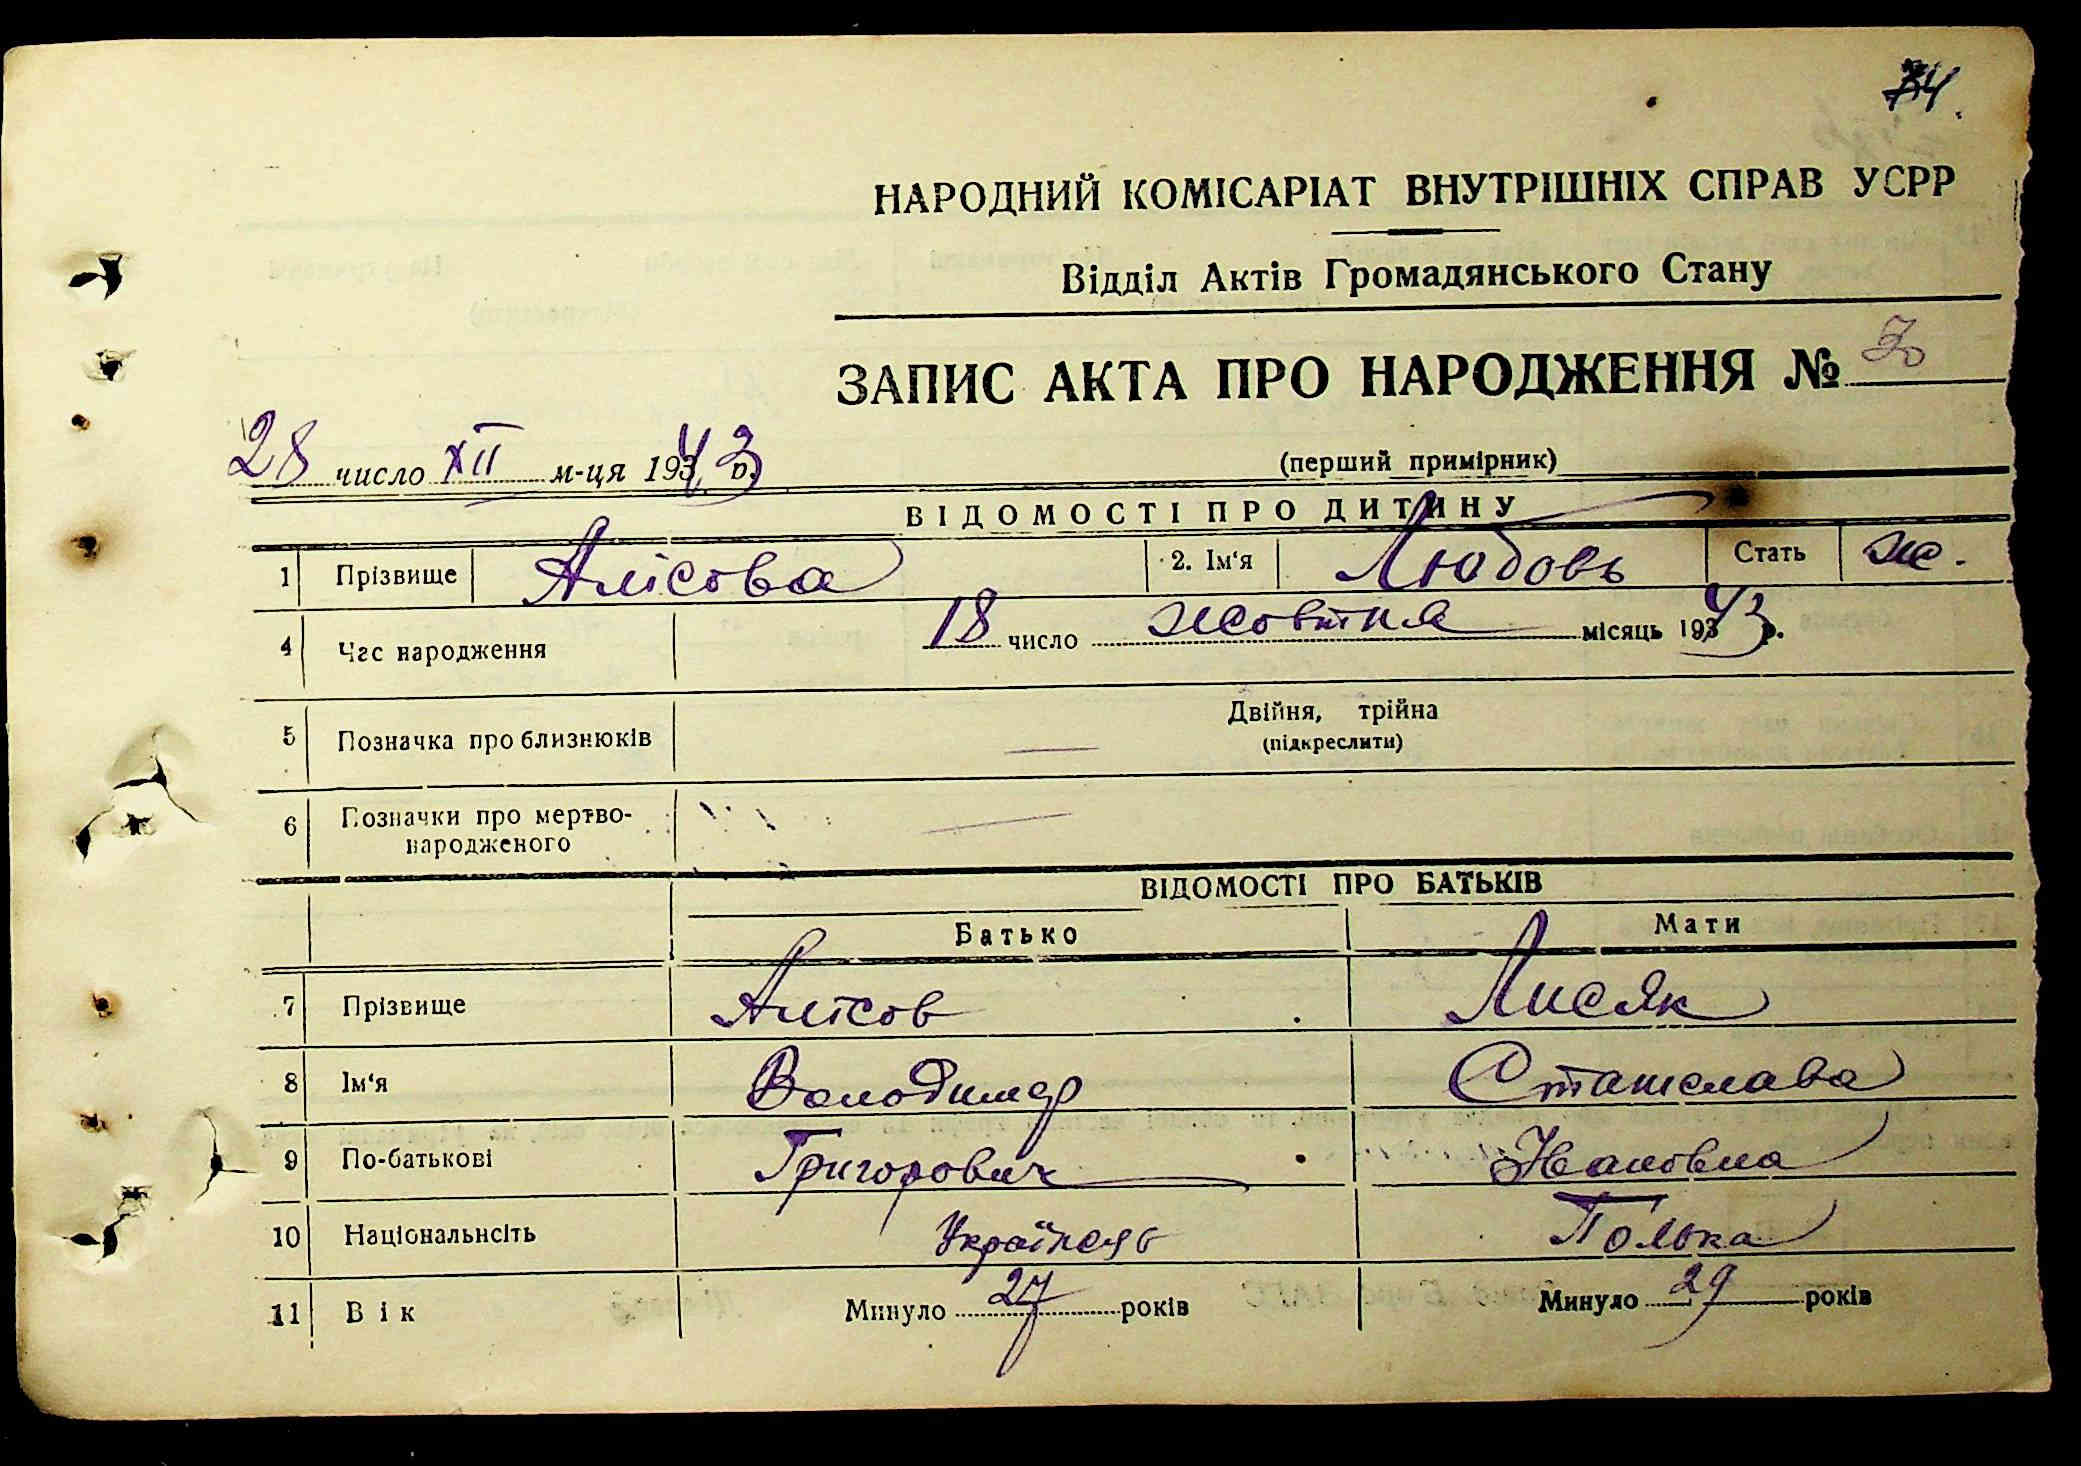 74.
НАРОДНИЙ КОМІСАРІАТ ВНУТРІШНІХ СПРАВ УСРР
Відділ Актів Громадянського Стану
ЗАПИС АКТА ПРО НАРОДЖЕННЯ № 3
28 число XII м-ця 1943 р.
(перший примірник)
ВІДОМОСТІ ПРО ДИТИНУ
1 Прізвище Алісова 2. Ім‘я Любовь Стать ж.
4 Час народження 18 число жовтня місяць 1943 р.
5 Позначка про близнюків — Двійня, трійна
(підкреслити)
6 Позначки про мертво-
народженого —
ВІДОМОСТІ ПРО БАТЬКІВ
Батько Мати
7 Прізвище Алісов Лисяк
8 Ім‘я Володимер Станислава
9 По-батькові Григорович Ивановна
10 Національнсіть Українець Полька
11 Вік Минуло 27 років Минуло 29 років